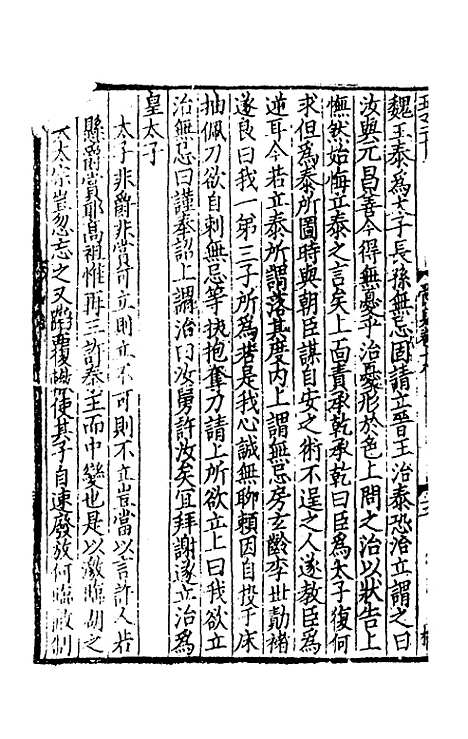 魏王泰爲太子長孫無忌固請立晉王治泰恐治立謂之曰
汝與元昌善今得無憂乎治憂形於色上問之治以狀告上
憮然始悔立泰之言矣上面責承乾承乾曰臣爲太子復何
求但爲泰所圖時與朝臣謀自安之術不逞之人遂教臣爲
逆耳今若立泰所謂落其度內上謂無忌房玄齡李世勣褚
遂良曰我一弟三子所爲若是我心誠無聊賴因自投于床
抽佩刀欲自刺無忌等扶抱奪刀請上所欲立上曰我欲立
治無忌曰謹奉詔上謂治曰汝舅許汝矣宜拜謝遂立治爲
皇太子
太子非爵非賞可立則立不可則不立豈當以言許人若
縣爵賞耶高祖惟再三許秦王而中變也是以激臨湖之
太宗豈忽忘之又使其子自速廢放何臨